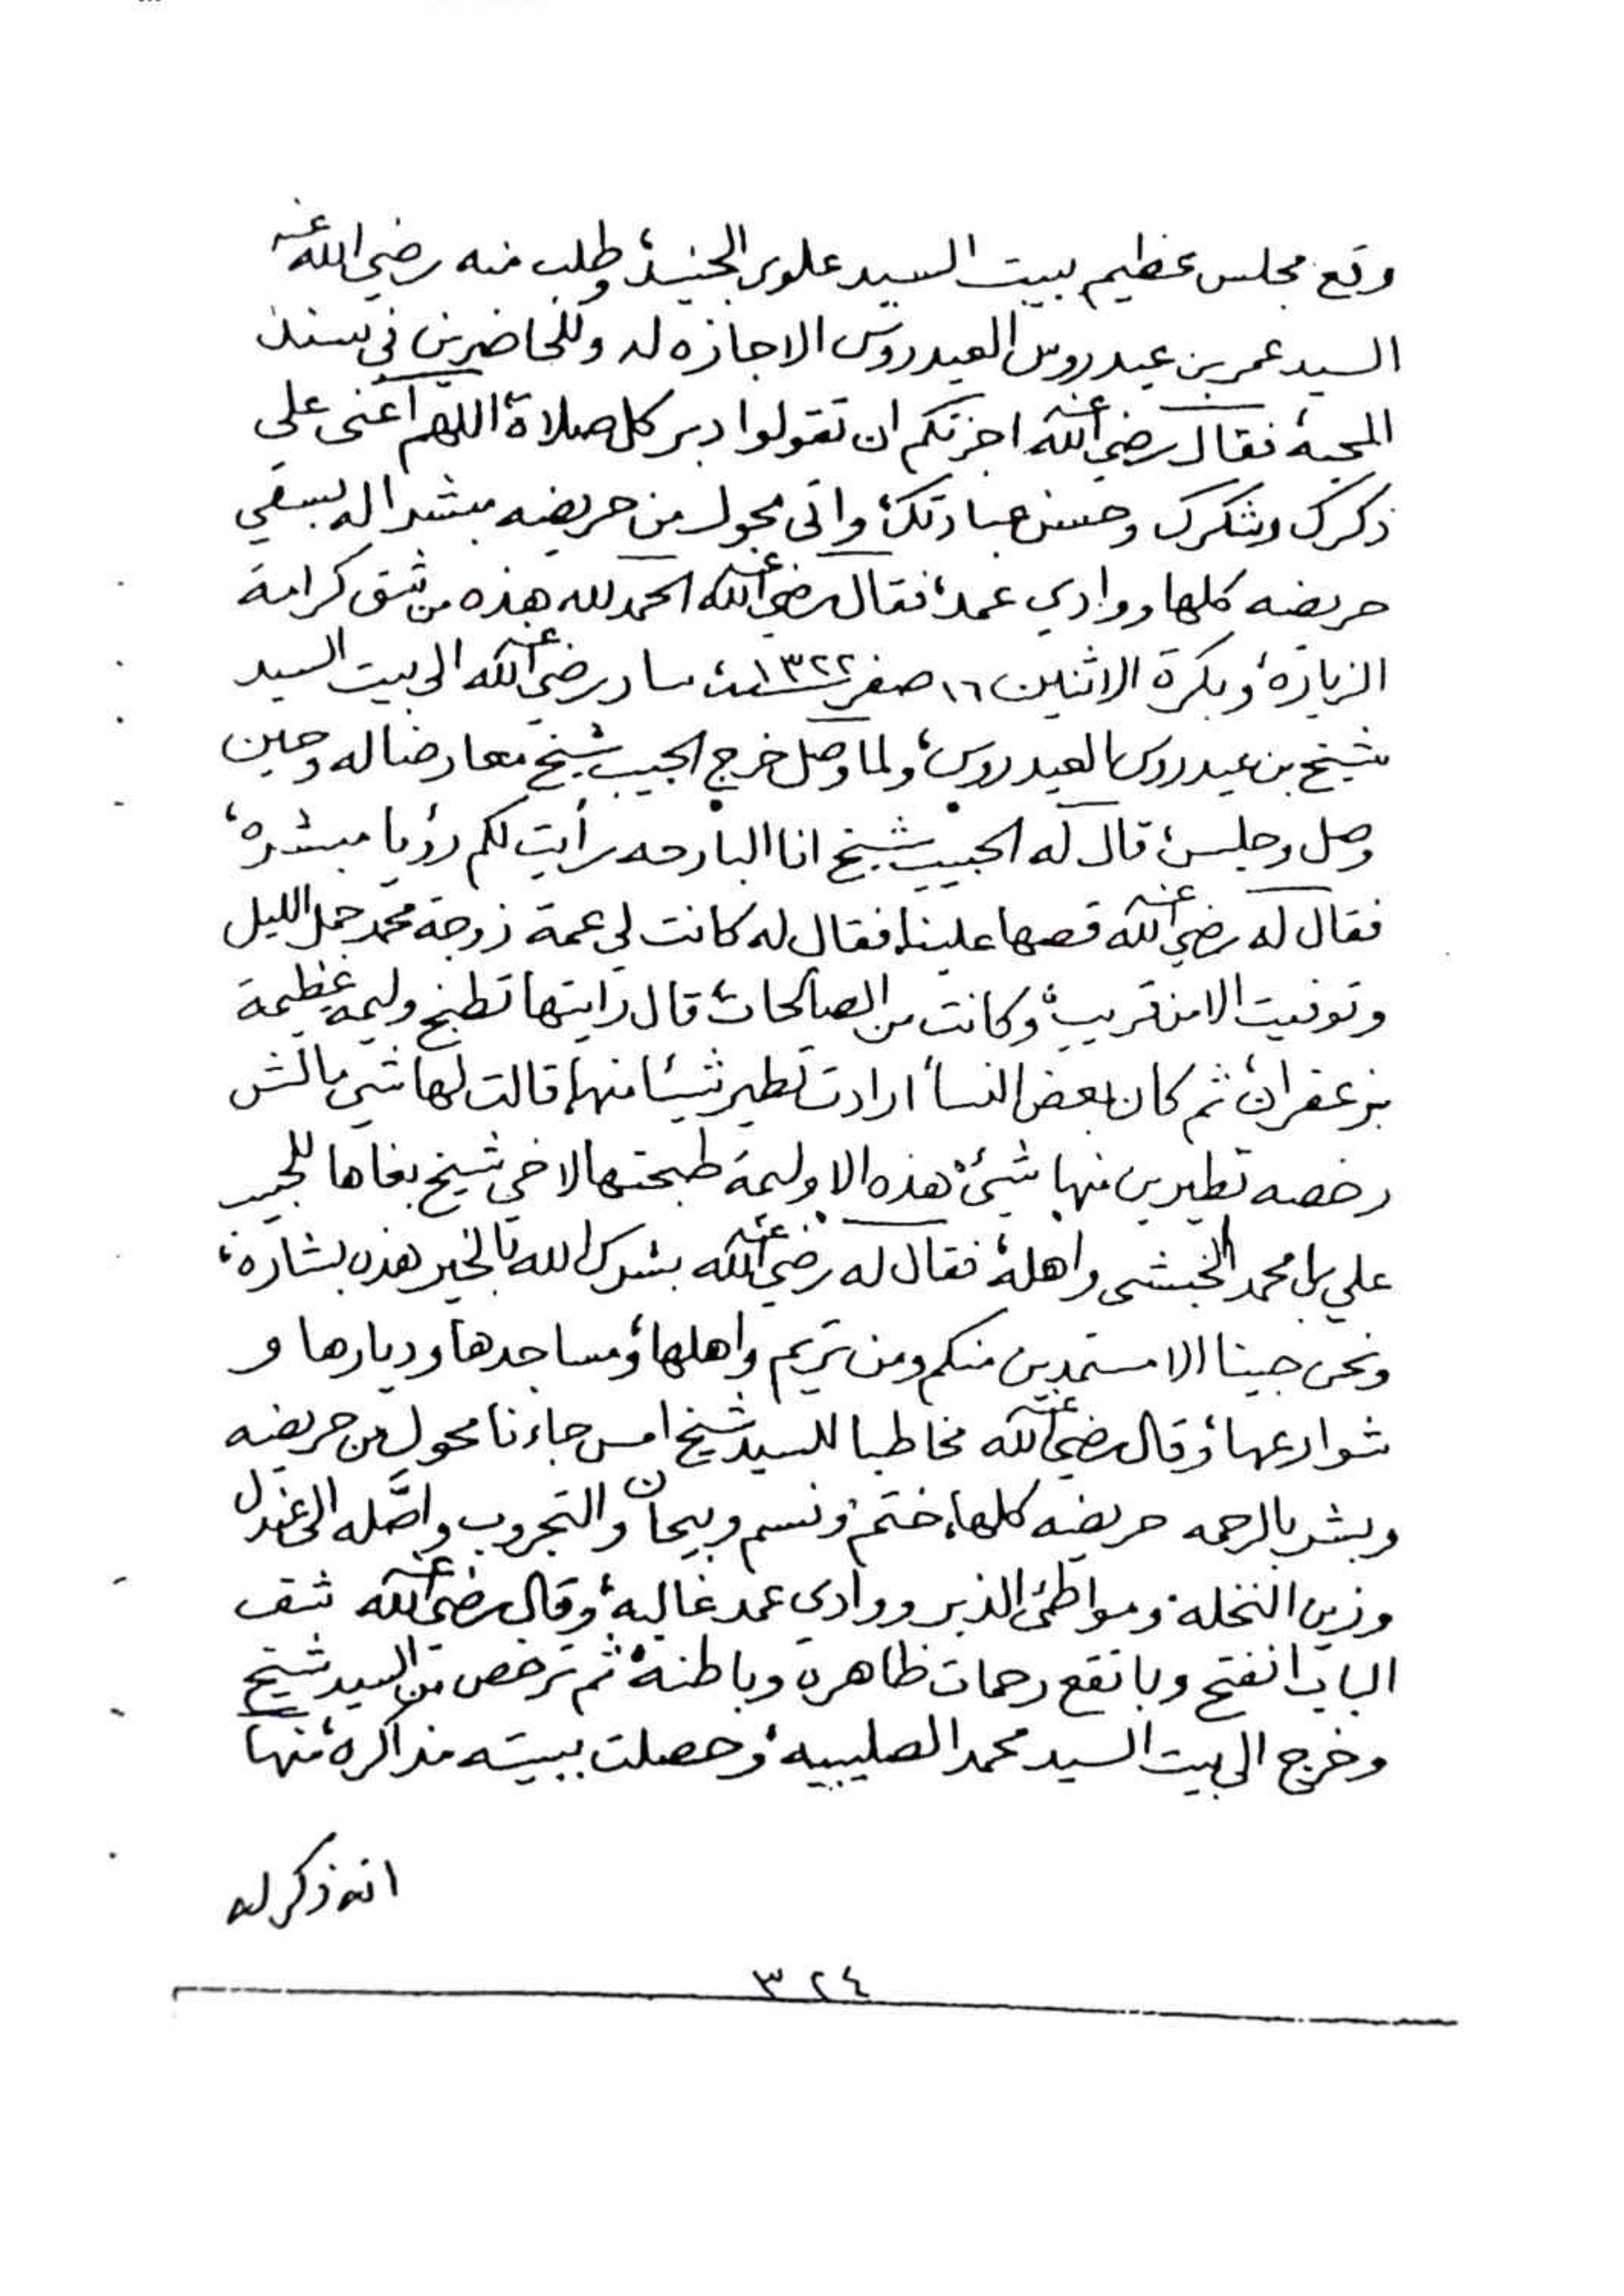 وقع مجلس عظيم ببيت السيد علوي الجنيد، وطلب منه رضي الله عنه
السيد عمر بن عيدروس العيدروس الاجازه له وللحاضرين في سند
المحبة فقال رضي الله عنه اجزتكم ان تقولوا دبر كل صلاة اللهم أعني على
ذكرك وشكرك وحسن عبادتك، واتى مجول من حريضه مبشرا له بسقي
حريضه كلها ووادي عمد، فقال رضي الله عنه الحمد لله هذه من شق كرامة
الزيارة، وبكرة الاثنين ١٦ صفر سنة ١٣٢٢ سار رضي الله عنه الى بيت السيد
شيخ بن عيدروس العيدروس، ولما وصل خرج الحبيب شيخ معارضا له وحين
وصل وجلس، قال له الحبيب شيخ انا البارحه رأيت لكم رؤيا مبشره،
فقال له رضي الله عنه قصها علينا، فقال له كانت لي عمة زوجة محمد جمل الليل
وتوفيت الا من قريب، وكانت من الصالحات، قال رايتها تطبخ وليمه عظيمة
بزعفران، ثم كان بعض النسأ ارادت تطير شيئا منها، قالت لها شي مالش
رخصه تطيرين منها شيء، هذه الا وليمة طبختها لاخي شيخ بغاها للحبيب
علي بن محمد الحبشي واهله، فقال له رضي الله عنه بشرك الله بالخير هذه بشارة،
ونحن جينا الا مستمدين منكم ومن تريم واهلها، ومساجدها وديارها و
شوارعها، وقال رضي الله عنه مخاطبا للسيد شيخ امس جاءنا محول من حريضه
وبشر بالرحمه حريضه كلها، ختم ونسم وبيحان والتجروب واصّله الى غيدل
وزين النخله ومواطئ الذبر ووادي عمد غالبه، وقال رضي الله عنه شف
الباب انفتح وباتقع رحمات ظاهرة وباطنة، ثم ترخص من السيد شيخ
وخرج الى بيت السيد محمد الصليبيه، وحصلت ببيته مذاكره، منها
انه ذكر له
٣٢٤